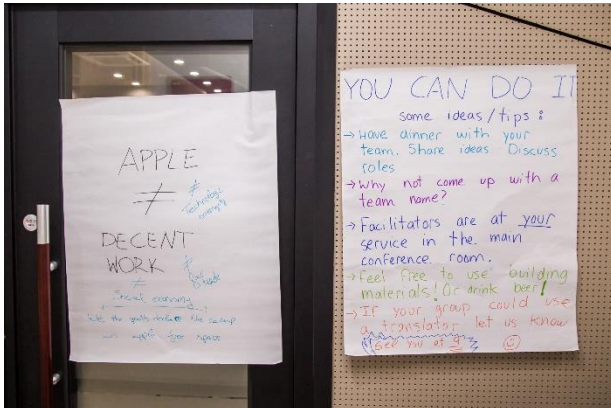 APPLE
≠
≠
Technology
DECENT
WORK
≠
≠
Social economy
let the youth
apple for
YOU CAN DO IT
some ideas/tips :
→ Have dinner with your
team. Share ideas Discuss
roles
→ Why not come up with a
team name?
→ Facilitators are at your
service in the main
conference room.
→ feel free to use building
materials! Or drink beer!
→ If your group could use
a translator let us know
See you at 9